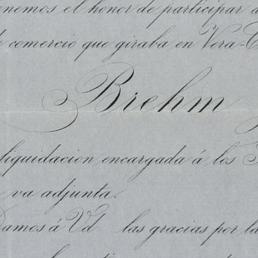 tenemos el honor de participar á
de comercio que giraba en Vera-C
Brehm
liquidacion encargada á los
va adjunta.
Damos á Vd las gracias por la